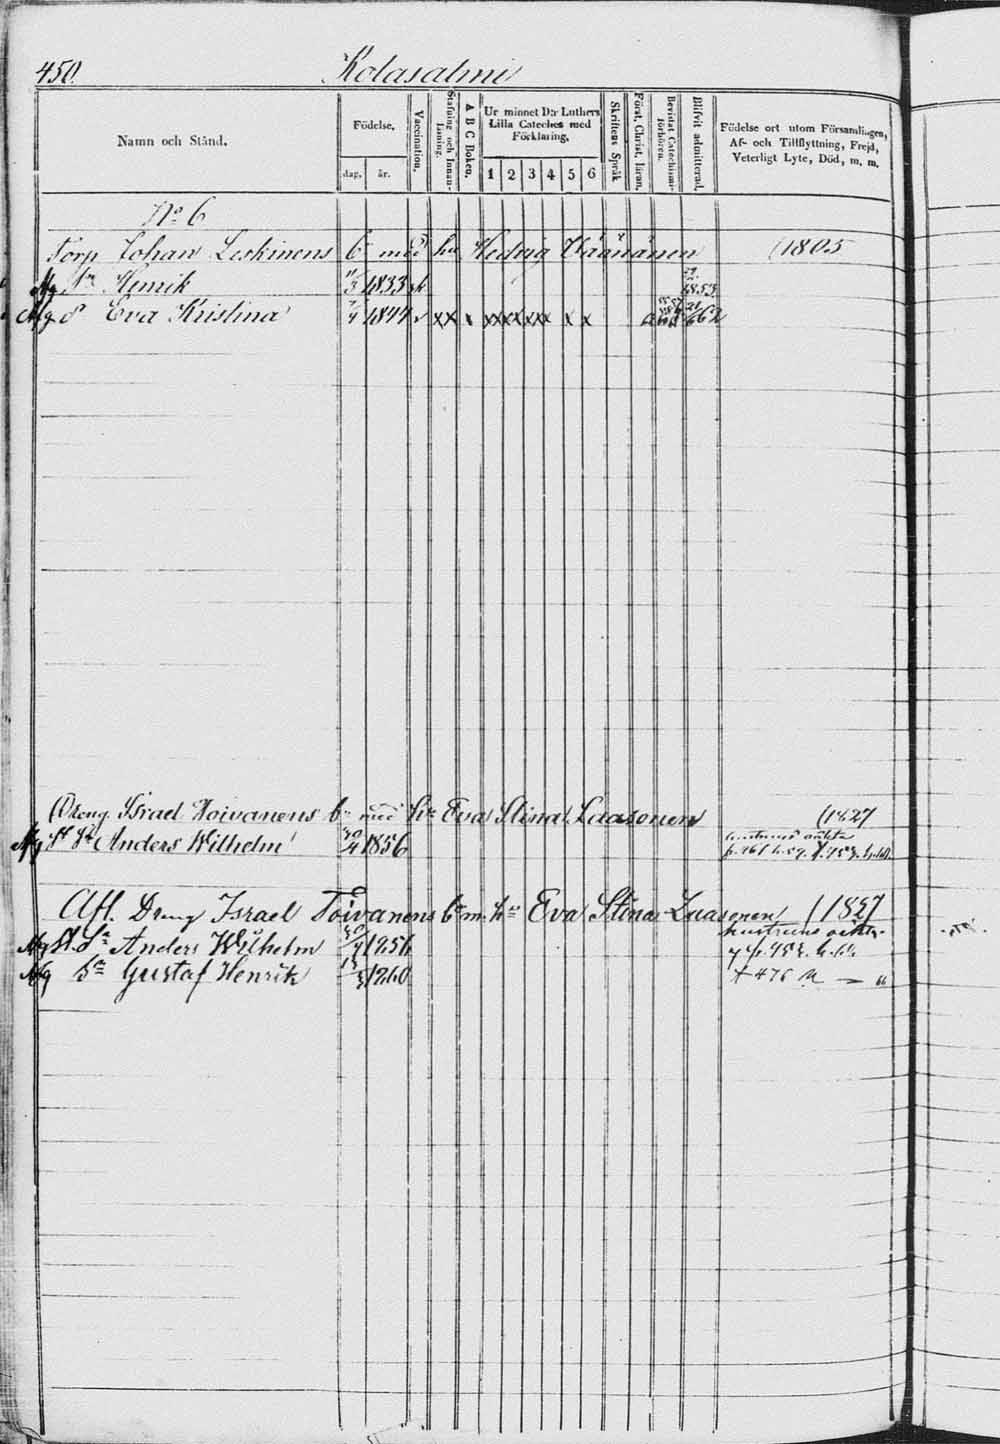 450. Kolasalmi
Namn och Stånd.
Födelse.
dag. år.
Vaccination.
Stafning och Innanläsning.
A B C Boken.
Ur minnet D:r Luthers Lilla Cateches med Förklaring.
1 2 3 4 5 6
Skriftens Språk
Först. Christ. läran.
Bevistat Catechismiförhören.
Blifvit admitterad.
Födelse ort utom Församlingen,
Af- och Tillflyttning, Frejd,
Veterligt Lyte, Död, m. m.
No 6
Torp Johan Leskinens b med hu Hedvig Väänänen (1805
Sn Henrik 11/3 1833 1853
Eva Kristina 7/4 1844 v xx x xx xx xx x x a 62
Dreng. Israel Toivanens b. med hu Eva Stina Laasonen (1827
Anders Wilhelm 30/4 1856
hustruns oäkta
Afl. Dreng Israel Toivanens b. m. hu Eva Stina Laasonen (1827
Anders Wilhelm 30/4 1856 hustruns oäkta
Sn Gustaf Henrik 1860